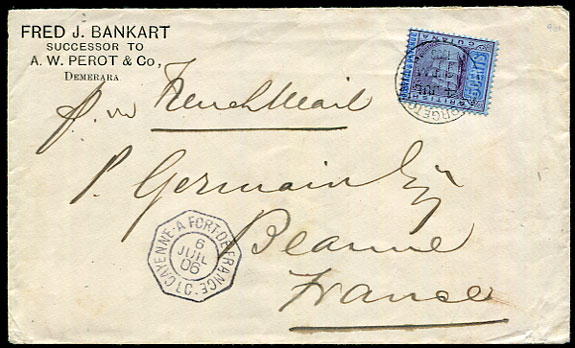 FRED J. BANKART
SUCCESSOR TO
A. W. PEROT & Co,
DEMERARA
French Mail
P. Germain Esq
Beaune
France
CAYENNE-A FORT-DE-FRANCE
6
JUIL
06
BRITISH
GUIANA